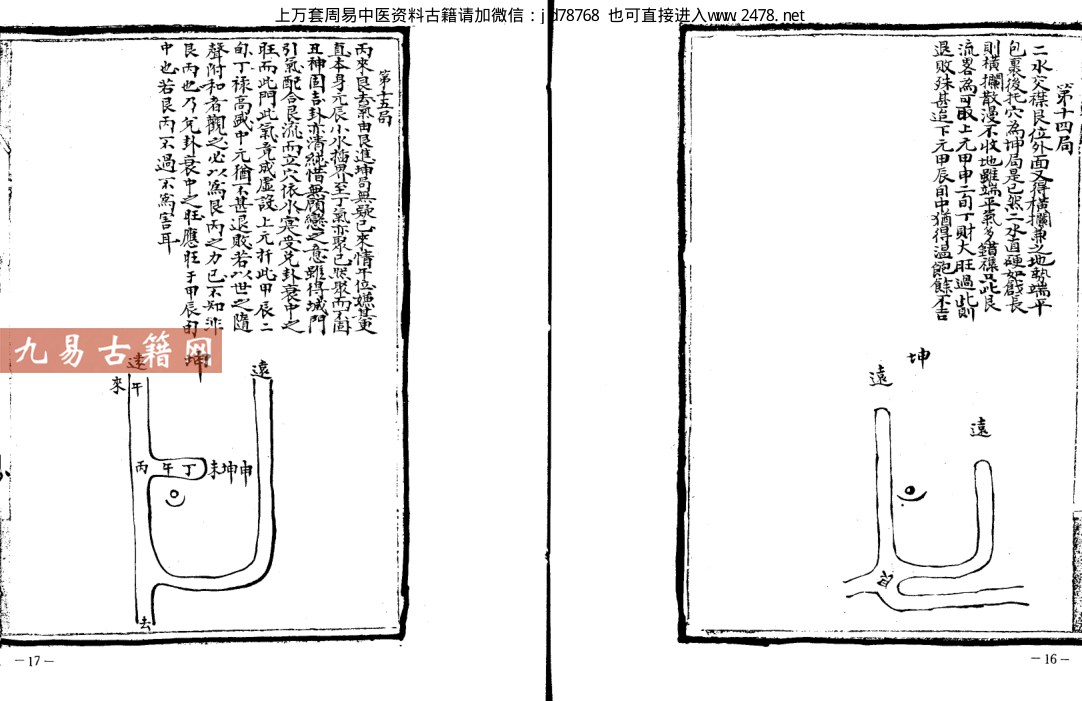 上万套周易中医资料古籍请加微信：jyd78768 也可直接进入www.2478.net
第十四局
二水交襟艮位外面又得橫攔兼之地勢端平
包裹後托穴為坤局是已然二水直硬如戲長
則橫攔散漫不收地雖端平氣多錯襍只此艮
流畧為可取上元甲申二旬丁財大旺過此則
退敗殊甚迨下元甲辰旬中猶得溫飽餘不吉
坤
遠
遠
艮
－16－
第十五局
丙來艮去氣由艮進坤局無疑已來情午位嫌其更
直本身元辰小水插界至丁氣亦聚已然聚而不固
丑神固吉卦亦清純惜無顧戀之意雖得城門
引氣配合艮流而立穴依水寔受兌卦衰中之
旺而此門此氣竟成虛設上元扦此甲辰二
旬丁祿高盛中元猶不甚退敗若以世之隨
聲附和者觀之必以為艮丙之力已不知非
艮丙也乃兌卦衰中之旺應旺于甲辰旬
中也若艮丙不過不為害耳
九易古籍网
遠
坤
遠
來
午
丙 午 丁 未坤申
去
－17－